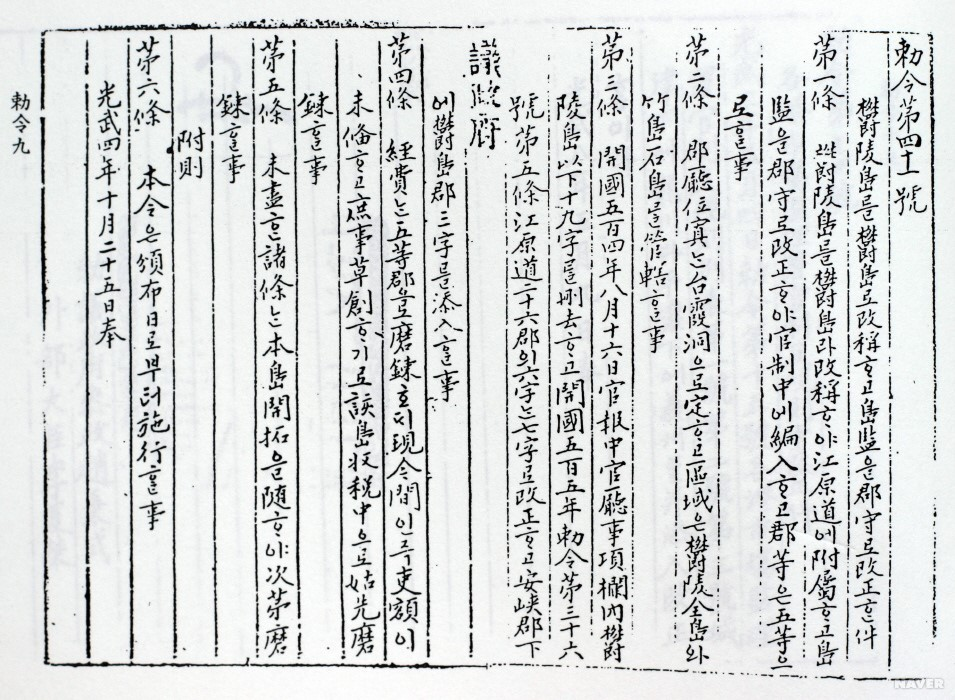 勅令第四十一號
欝陵島를欝島로改稱ᄒᆞ고島監을郡守로改正ᄒᆞᆫ件
第一條 欝陵島를欝島라改稱ᄒᆞ야江原道에附屬ᄒᆞ고島
監을郡守로改正ᄒᆞ야官制中에編入ᄒᆞ고郡等은五等으
로ᄒᆞᆯ事
第二條 郡廳位寘ᄂᆞᆫ台霞洞으로定ᄒᆞ고區域은欝陵全島와
竹島石島를管轄ᄒᆞᆯ事
第三條 開國五百四年八月十六日官報中官廳事項欄內欝
陵島以下十九字를刪去ᄒᆞ고開國五百五年勅令第三十六
號第五條江原道二十六郡의六字ᄂᆞᆫ七字로改正ᄒᆞ고安峽郡下
議政府
에欝島郡三字를添入ᄒᆞᆯ事
第四條 經費ᄂᆞᆫ五等郡으로磨鍊호ᄃᆡ現今間인즉吏額이
未備ᄒᆞ고庶事草創ᄒᆞ기로該島收稅中으로姑先磨
鍊ᄒᆞᆯ事
第五條 未盡ᄒᆞᆫ諸條ᄂᆞᆫ本島開拓을隨ᄒᆞ야次第磨
鍊ᄒᆞᆯ事
附則
第六條 本令은頒布日로부터施行ᄒᆞᆯ事
光武四年十月二十五日奉
勅令九
NAVER